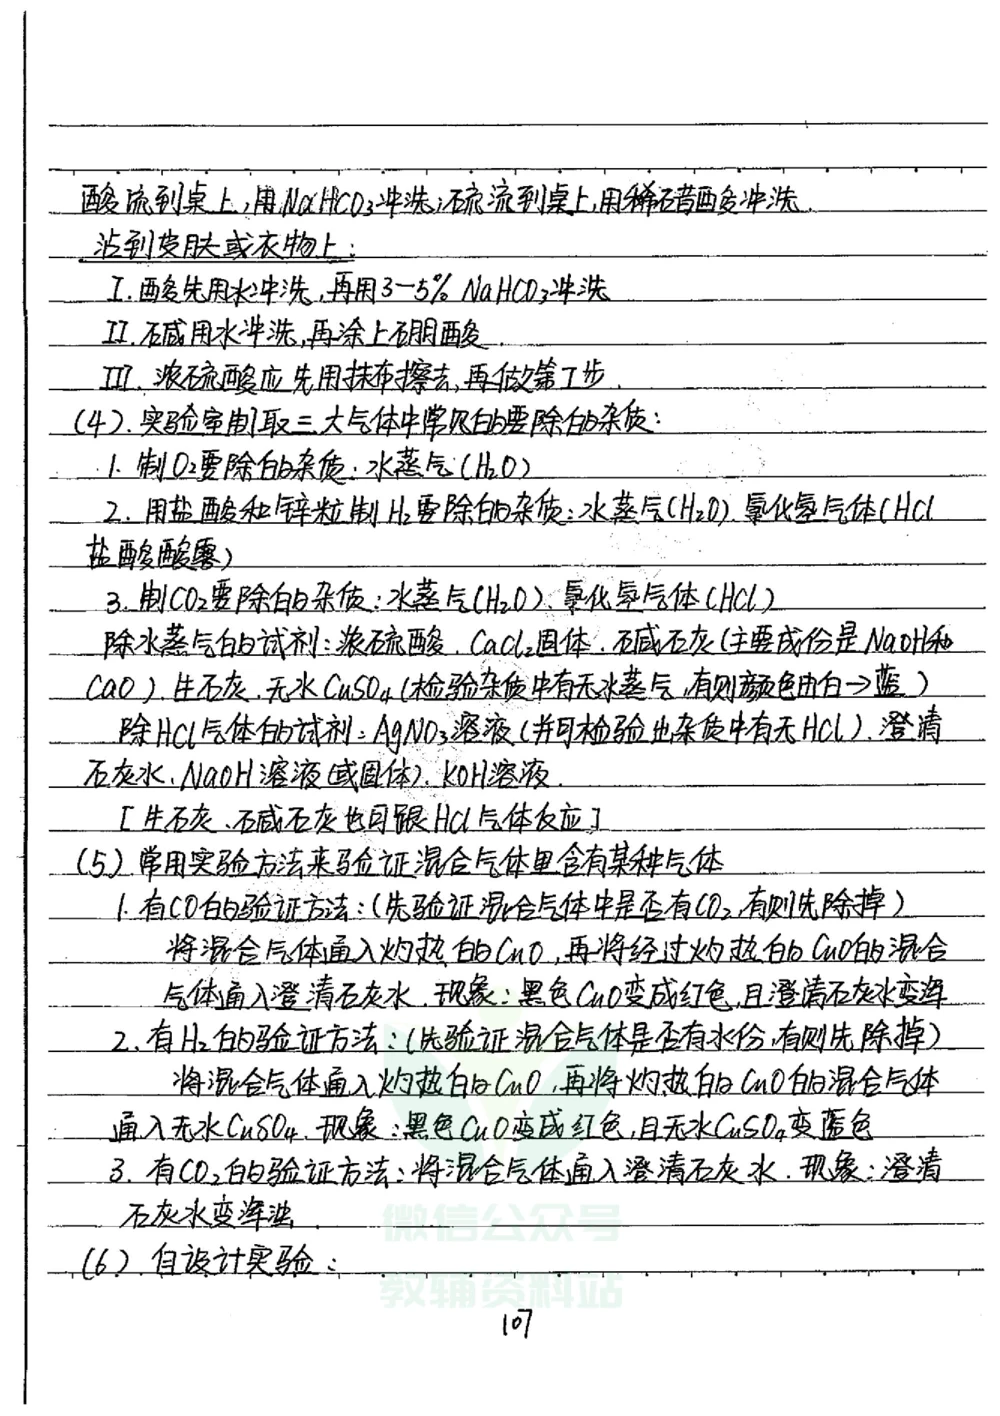 酸流到桌上,用NaHCO3冲洗;硫流到桌上,用稀醋酸冲洗.
沾到皮肤或衣物上:
I.酸先用水冲洗,再用3-5% NaHCO3冲洗
II.碱用水冲洗,再涂上硼酸.
III.浓硫酸应先用抹布擦去,再做第I步.
(4).实验室制取三大气体中常见的要除的杂质:
1.制O2要除的杂质:水蒸气(H2O)
2.用盐酸和锌粒制H2要除的杂质:水蒸气(H2O).氯化氢气体(HCl
盐酸酸雾)
3.制CO2要除的杂质:水蒸气(H2O)、氯化氢气体(HCl)
除水蒸气的试剂:浓硫酸.CaCl2固体.碱石灰(主要成份是NaOH和
CaO).生石灰.无水CuSO4(检验杂质中有无水蒸气,有则颜色由白→蓝)
除HCl气体的试剂:AgNO3溶液(并可检验出杂质中有无HCl).澄清
石灰水、NaOH溶液(或固体).KOH溶液.
[生石灰、碱石灰也可跟HCl气体反应]
(5)常用实验方法来验证混合气体里含有某种气体
1.有CO的验证方法:(先验证混合气体中是否有CO2,有则先除掉)
将混合气体通入灼热的CuO,再将经过灼热的CuO的混合
气体通入澄清石灰水.现象:黑色CuO变成红色,且澄清石灰水变浑
2.有H2的验证方法:(先验证混合气体是否有水份,有则先除掉)
将混合气体通入灼热的CuO,再将灼热的CuO的混合气体
通入无水CuSO4.现象:黑色CuO变成红色,且无水CuSO4变蓝色
3.有CO2的验证方法:将混合气体通入澄清石灰水.现象:澄清
石灰水变浑浊.
(6).自设计实验:
微信公众号
教辅资料站
107